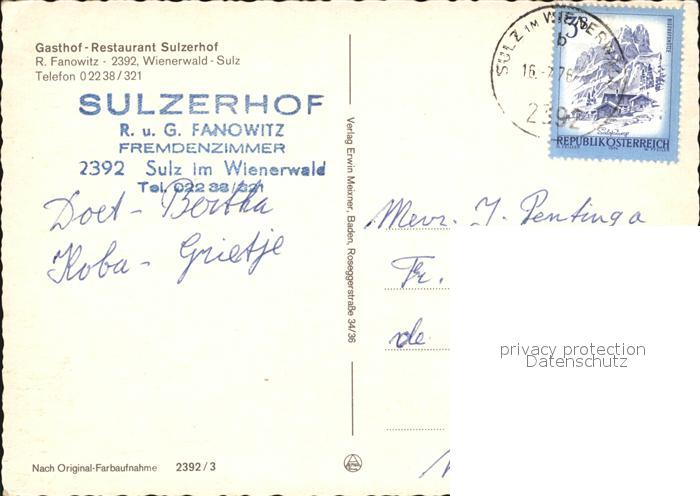 Gasthof - Restaurant Sulzerhof
R. Fanowitz - 2392, Wienerwald - Sulz
Telefon 0 22 38 / 321
SULZERHOF
R. u. G. FANOWITZ
FREMDENZIMMER
2392 Sulz im Wienerwald
Tel. 02238/321
Doet - Bertha
Koba - Grietje
Nach Original-Farbaufnahme 2392/3
Verlag Erwin Meixner, Baden, Roseggerstraße 34/36
SULZ IM WIENERWALD
b
16.-7.76
2392
REPUBLIK ÖSTERREICH
Mevr. J. Pentinga
Fr.
de
privacy protection
Datenschutz